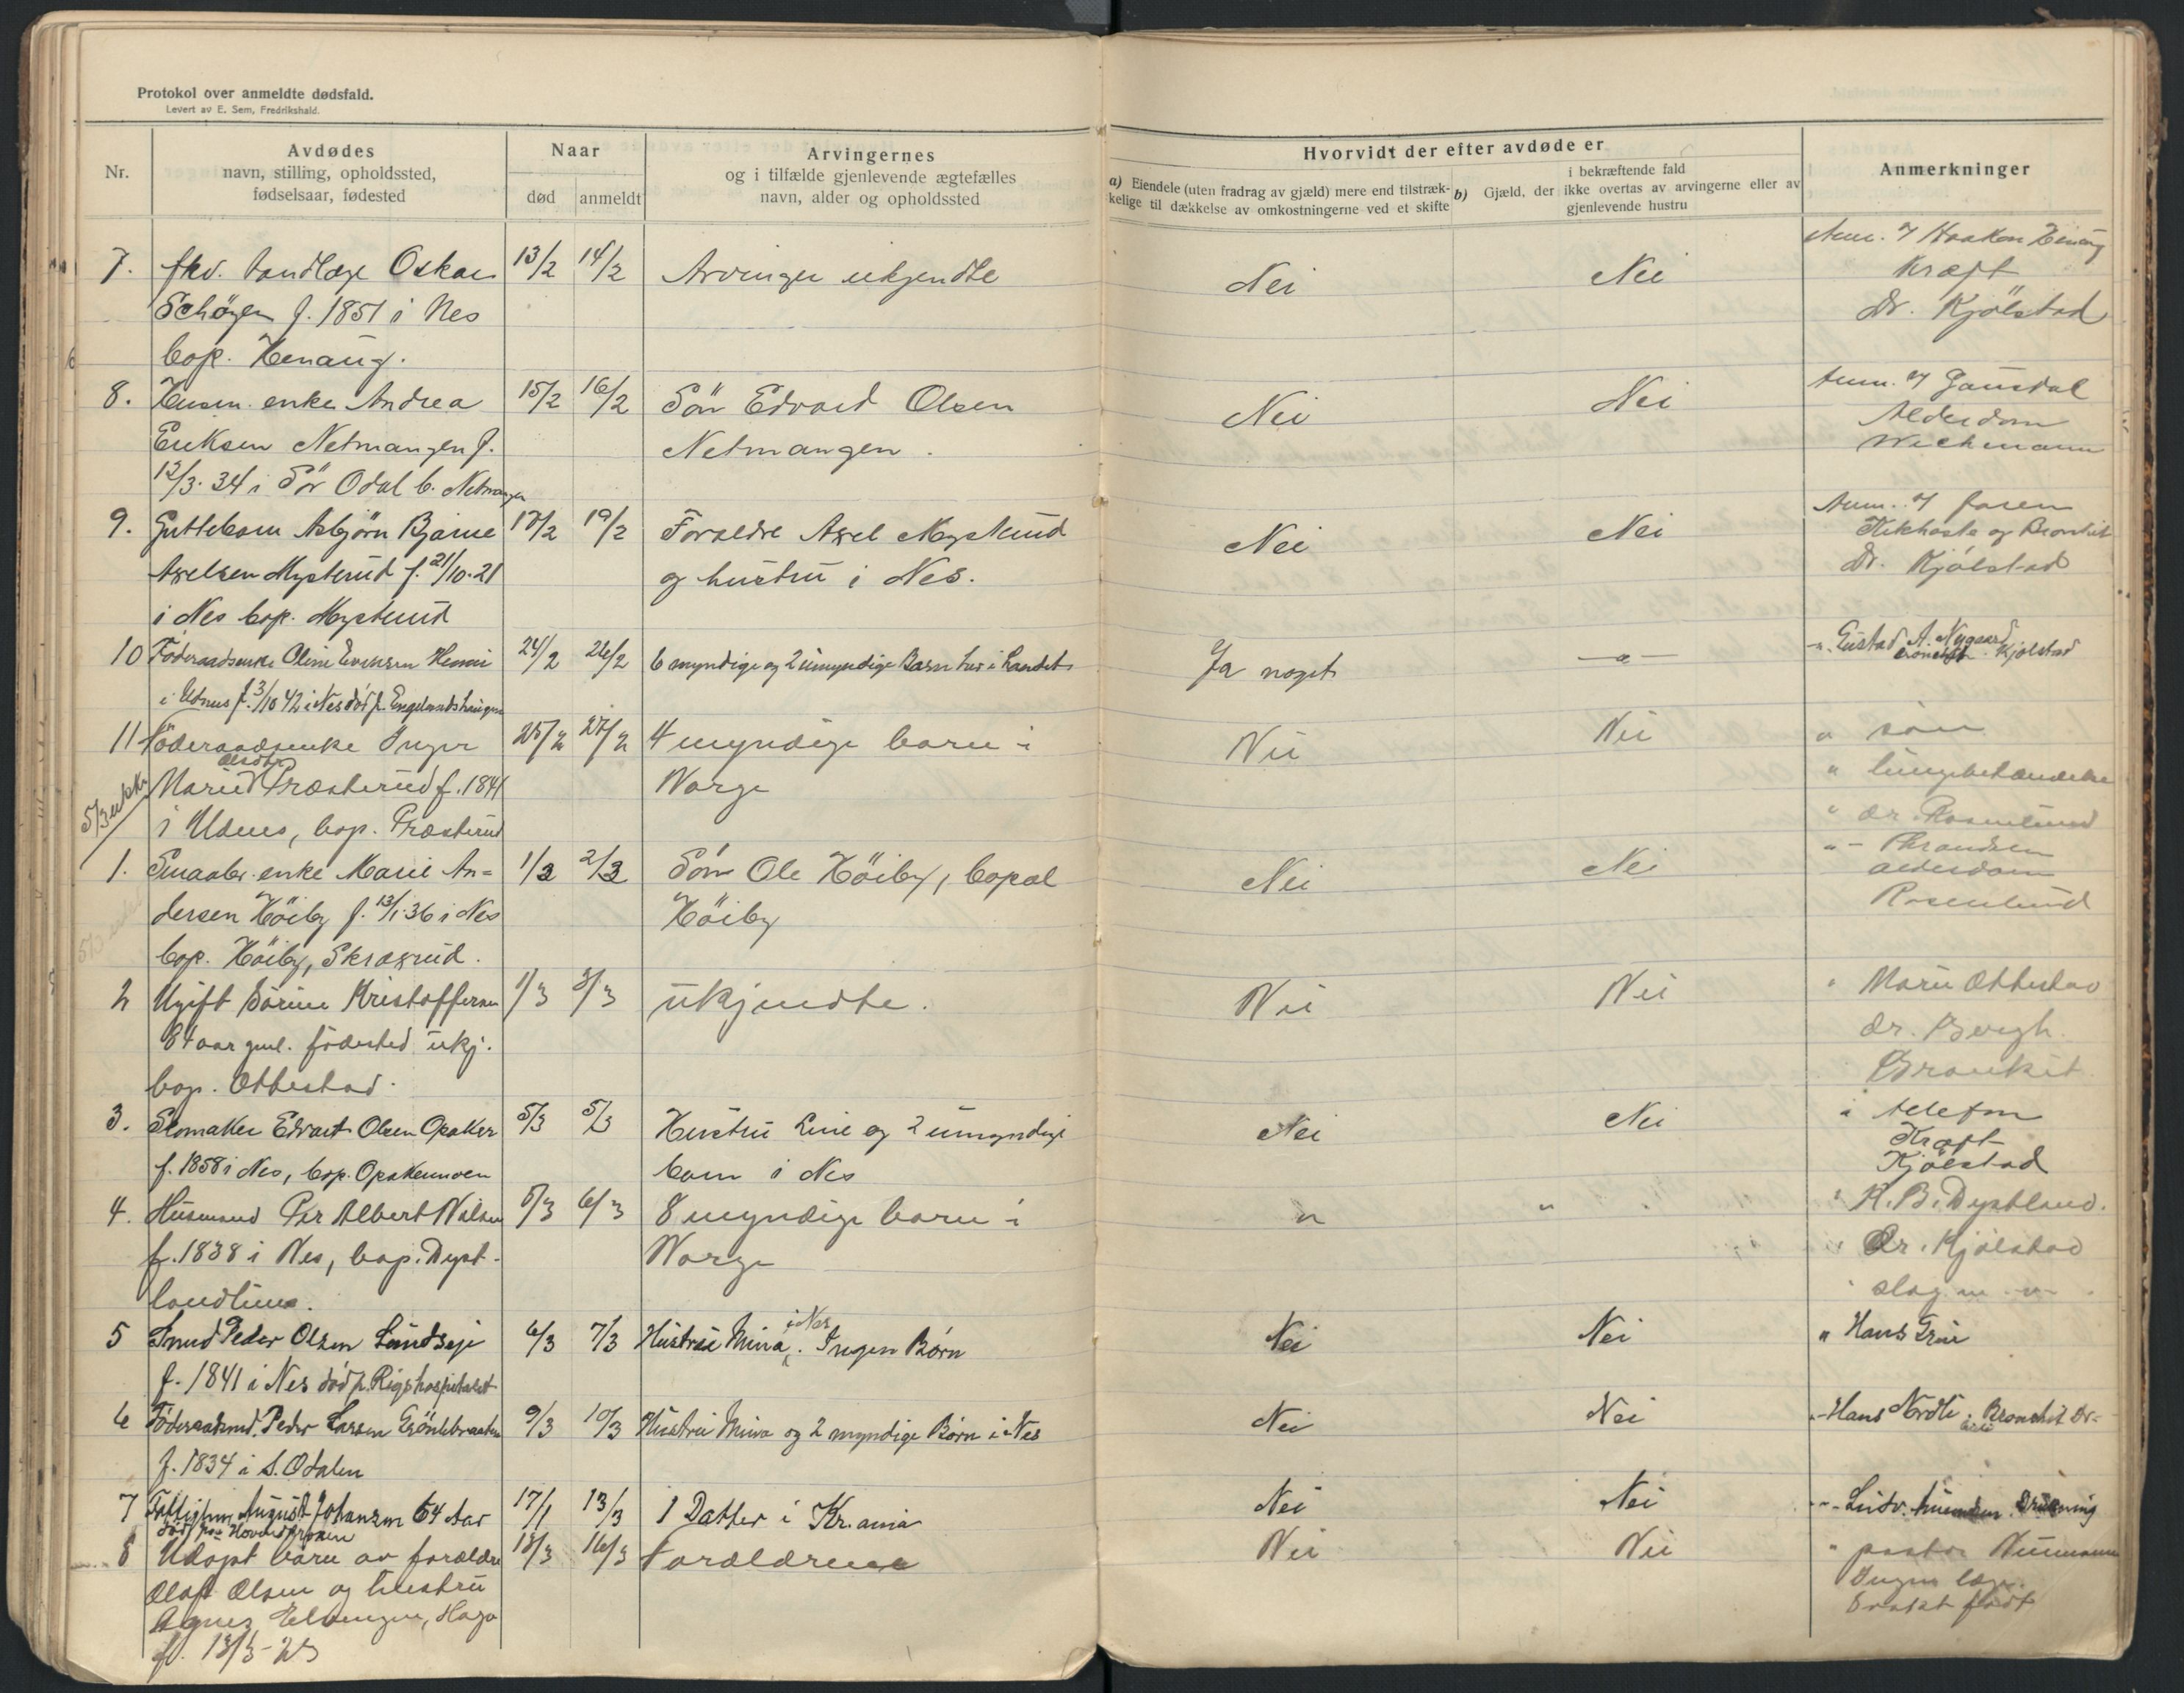 Protokol over anmeldte dødsfald.
Levert av E. Sem, Fredrikshald.
Nr.
Avdødes
navn, stilling, opholdssted,
fødselsaar, fødested
Naar
død
anmeldt
Arvingernes
og i tilfælde gjenlevende ægtefælles
navn, alder og opholdssted
Hvorvidt der efter avdøde er
a) Eiendele (uten fradrag av gjæld) mere end tilstræk-
kelige til dækkelse av omkostningerne ved et skifte
b) Gjæld, der i bekræftende fald
ikke overtas av arvingerne eller av
gjenlevende hustru
Anmerkninger
7. fhv. Tandlæge Oskar 13/2 14/2 Arvinger ukjendte Nei Nei Anm. af Haakon Henaug
Schøyen f. 1851 i Nes Kræft
bop. Henaug. Dr. Kjölstad
8. Husm. enke Andrea 15/2 16/2 Sön Edvard Olsen Nei Nei Anm. af Gausdal
Eriksen Netmangen f. Netmangen. Alderdom
12/3. 34 i Sör Odal b. Netmangen Wichmann
9. Guttebarn Asbjörn Bjarne 17/2 19/2 Foraldre Axel Mysterud Nei Nei Anm. af faren
Axelsen Mysterud f. 21/10.21 og hustru i Nes. Kikhoste og Bronkit
i Nes bop. Mysterud Dr. Kjölstad
10 Föderaadsenke Oline Evensen Hemni 24/2 26/2 6 myndige og 2 umyndige Barn her i Landet Ja noget -"- -"- Gustad A. Nygaard
i Udnes f. 3/10 42 i Nes död p. Engelundshaugen Kjølstad
11 Föderaadsenke Inger 25/2 27/2 4 myndige barn i Nei Nei " sön
Marie Olsdtr Præsterud f. 1841 Norge " lungebetændelse
i Udnes, bop. Præsterud " dr. Rosenlund
1. Smaabr. enke Marie An= 1/3 2/3 Sön Ole Höiby, bopæl Nei Nei "- Thrandsen
dersen Höiby f. 13/1.36 i Nes Höiby alderdom
bop. Höiby, Skraxrud. Rosenlund
2 Ugift Sörine Kristoffersen 1/3 3/3 ukjendte. Nei Nei " Marie Ottestad
84 aar gml. födested ukj. dr. Bergh.
bop. Ottestad. Bronkit
3. Skomaker Edvart Olsen Opaker 5/3 5/3 Hustru Line og 2 umyndige Nei Nei i telefon
f. 1858 i Nes, bop. Opakermoen barn i Nes Kræft
Kjölstad
4. Husmand Per Albert Nilsen 5/3 6/3 8 myndige barn i " " " K. B. Dystland.
f. 1838 i Nes, bop. Dyst- Norge Dr. Kjölstad
landtune. slag
5 Smed Peder Olsen Lundseje 6/3 7/3 Hustru Mina i Nes. Ingen Börn Nei Nei " Hans Grue
f. 1841 i Nes död p. Rigshospitalet
6 Föderaadsmd. Peder Larsen Grönlibraaten 9/3 10/3 Hustru Mina og 2 myndige Börn i Nes Nei Nei "- Hans Nordli. Bronchit Dr.
f. 1834 i S. Odalen
7 Fattiglem August Johansen 64 Aar 17/1 13/3 1 Datter i Kr.ania Nei Nei
död paa
8 Udöpt barn av forældre 13/3 16/3 Forældrene Nei Nei " pastor Neumann
Olaf Olsen og hustru Ingen læge.
Agnes Elvengen, Haga Svakt født
f. 13/3-23